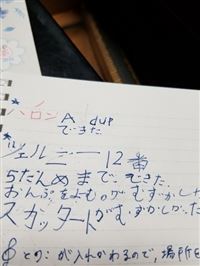 *ハノン A dur
できた
*ツェルニー 12番
5だんめまで、できた。
おんぷをよむのがむずかしかっ
スタッカートがむずかしかった
と: が入れかわるので、場所を